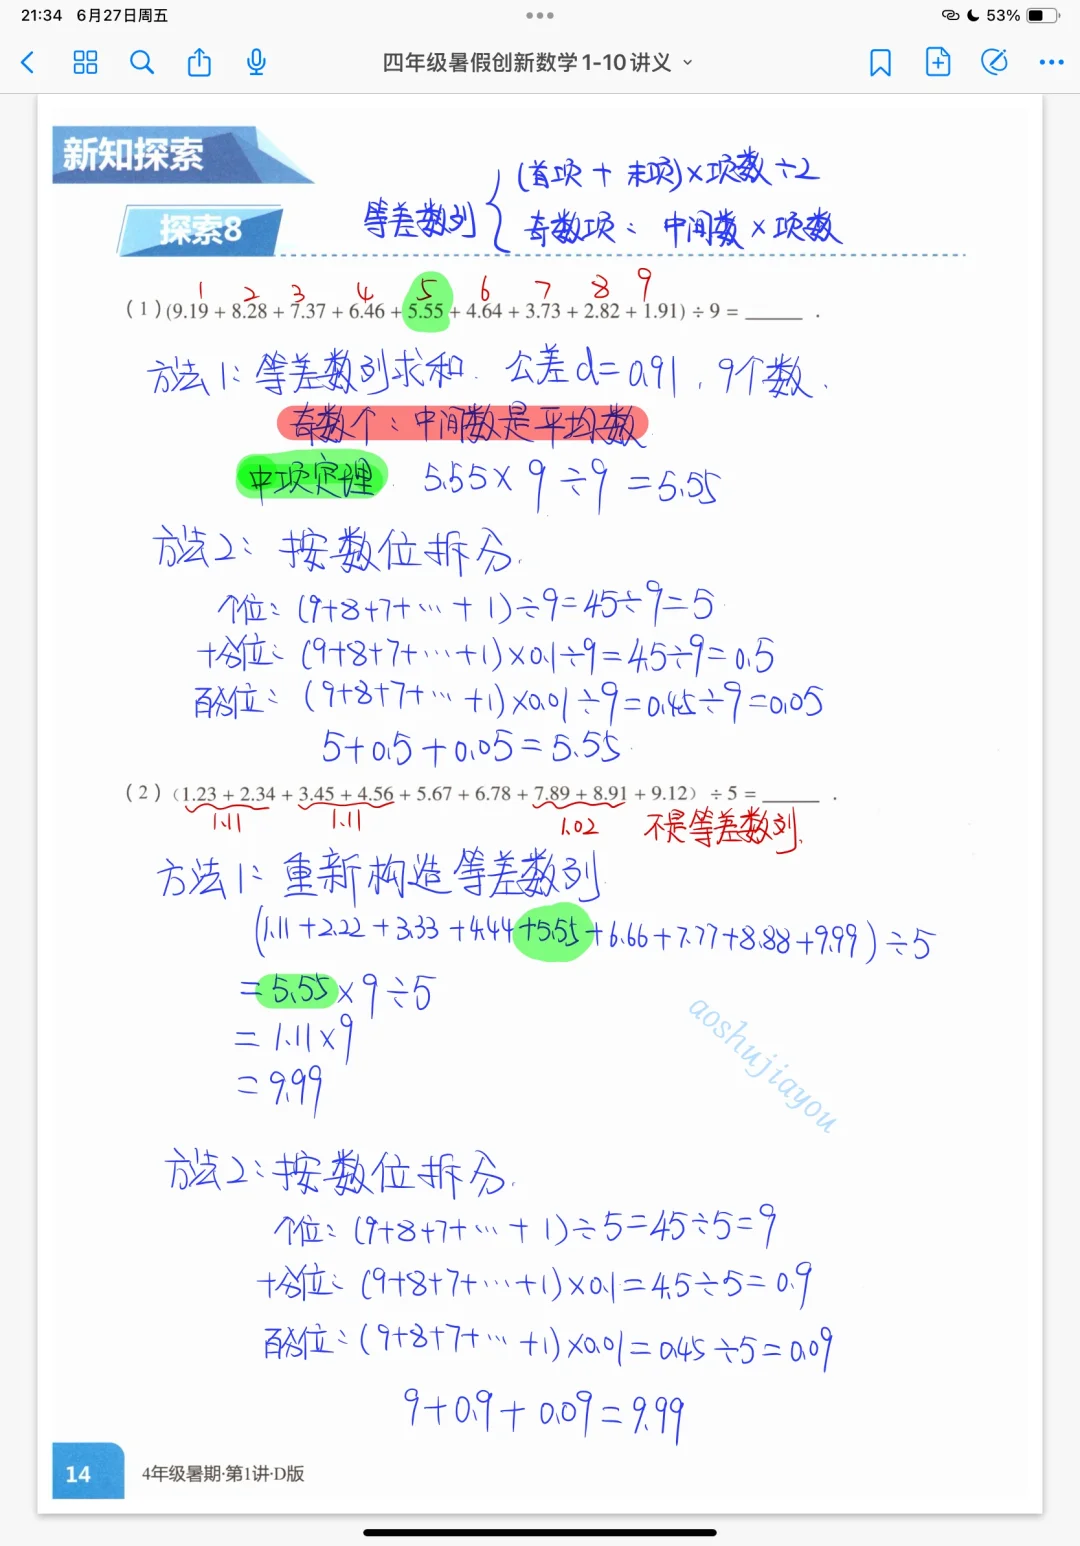 21:34 6月27日周五 53%
四年级暑假创新数学1-10讲义
新知探索
等差数列 { (首项 + 末项)×项数÷2
奇数项：中间数×项数
探索8
1 2 3 4 5 6 7 8 9
(1)(9.19 + 8.28 + 7.37 + 6.46 + 5.55 + 4.64 + 3.73 + 2.82 + 1.91) ÷ 9 = ______ .
方法1：等差数列求和. 公差d=0.91, 9个数.
奇数个：中间数是平均数
中项定理. 5.55×9÷9=5.55
方法2：按数位拆分.
个位：(9+8+7+…+1)÷9=45÷9=5
十分位：(9+8+7+…+1)×0.1÷9=4.5÷9=0.5
百分位：(9+8+7+…+1)×0.01÷9=0.45÷9=0.05
5+0.5+0.05=5.55
(2)(1.23 + 2.34 + 3.45 + 4.56 + 5.67 + 6.78 + 7.89 + 8.91 + 9.12) ÷ 5 = ______ .
1.11 1.11 1.02 不是等差数列.
方法1：重新构造等差数列
(1.11+2.22+3.33+4.44+5.55+6.66+7.77+8.88+9.99)÷5
=5.55×9÷5
=1.11×9
=9.99
aoshujiayou
方法2：按数位拆分.
个位：(9+8+7+…+1)÷5=45÷5=9
十分位：(9+8+7+…+1)×0.1=4.5÷5=0.9
百分位：(9+8+7+…+1)×0.01=0.45÷5=0.09
9+0.9+0.09=9.99
14 4年级暑期·第1讲·D版